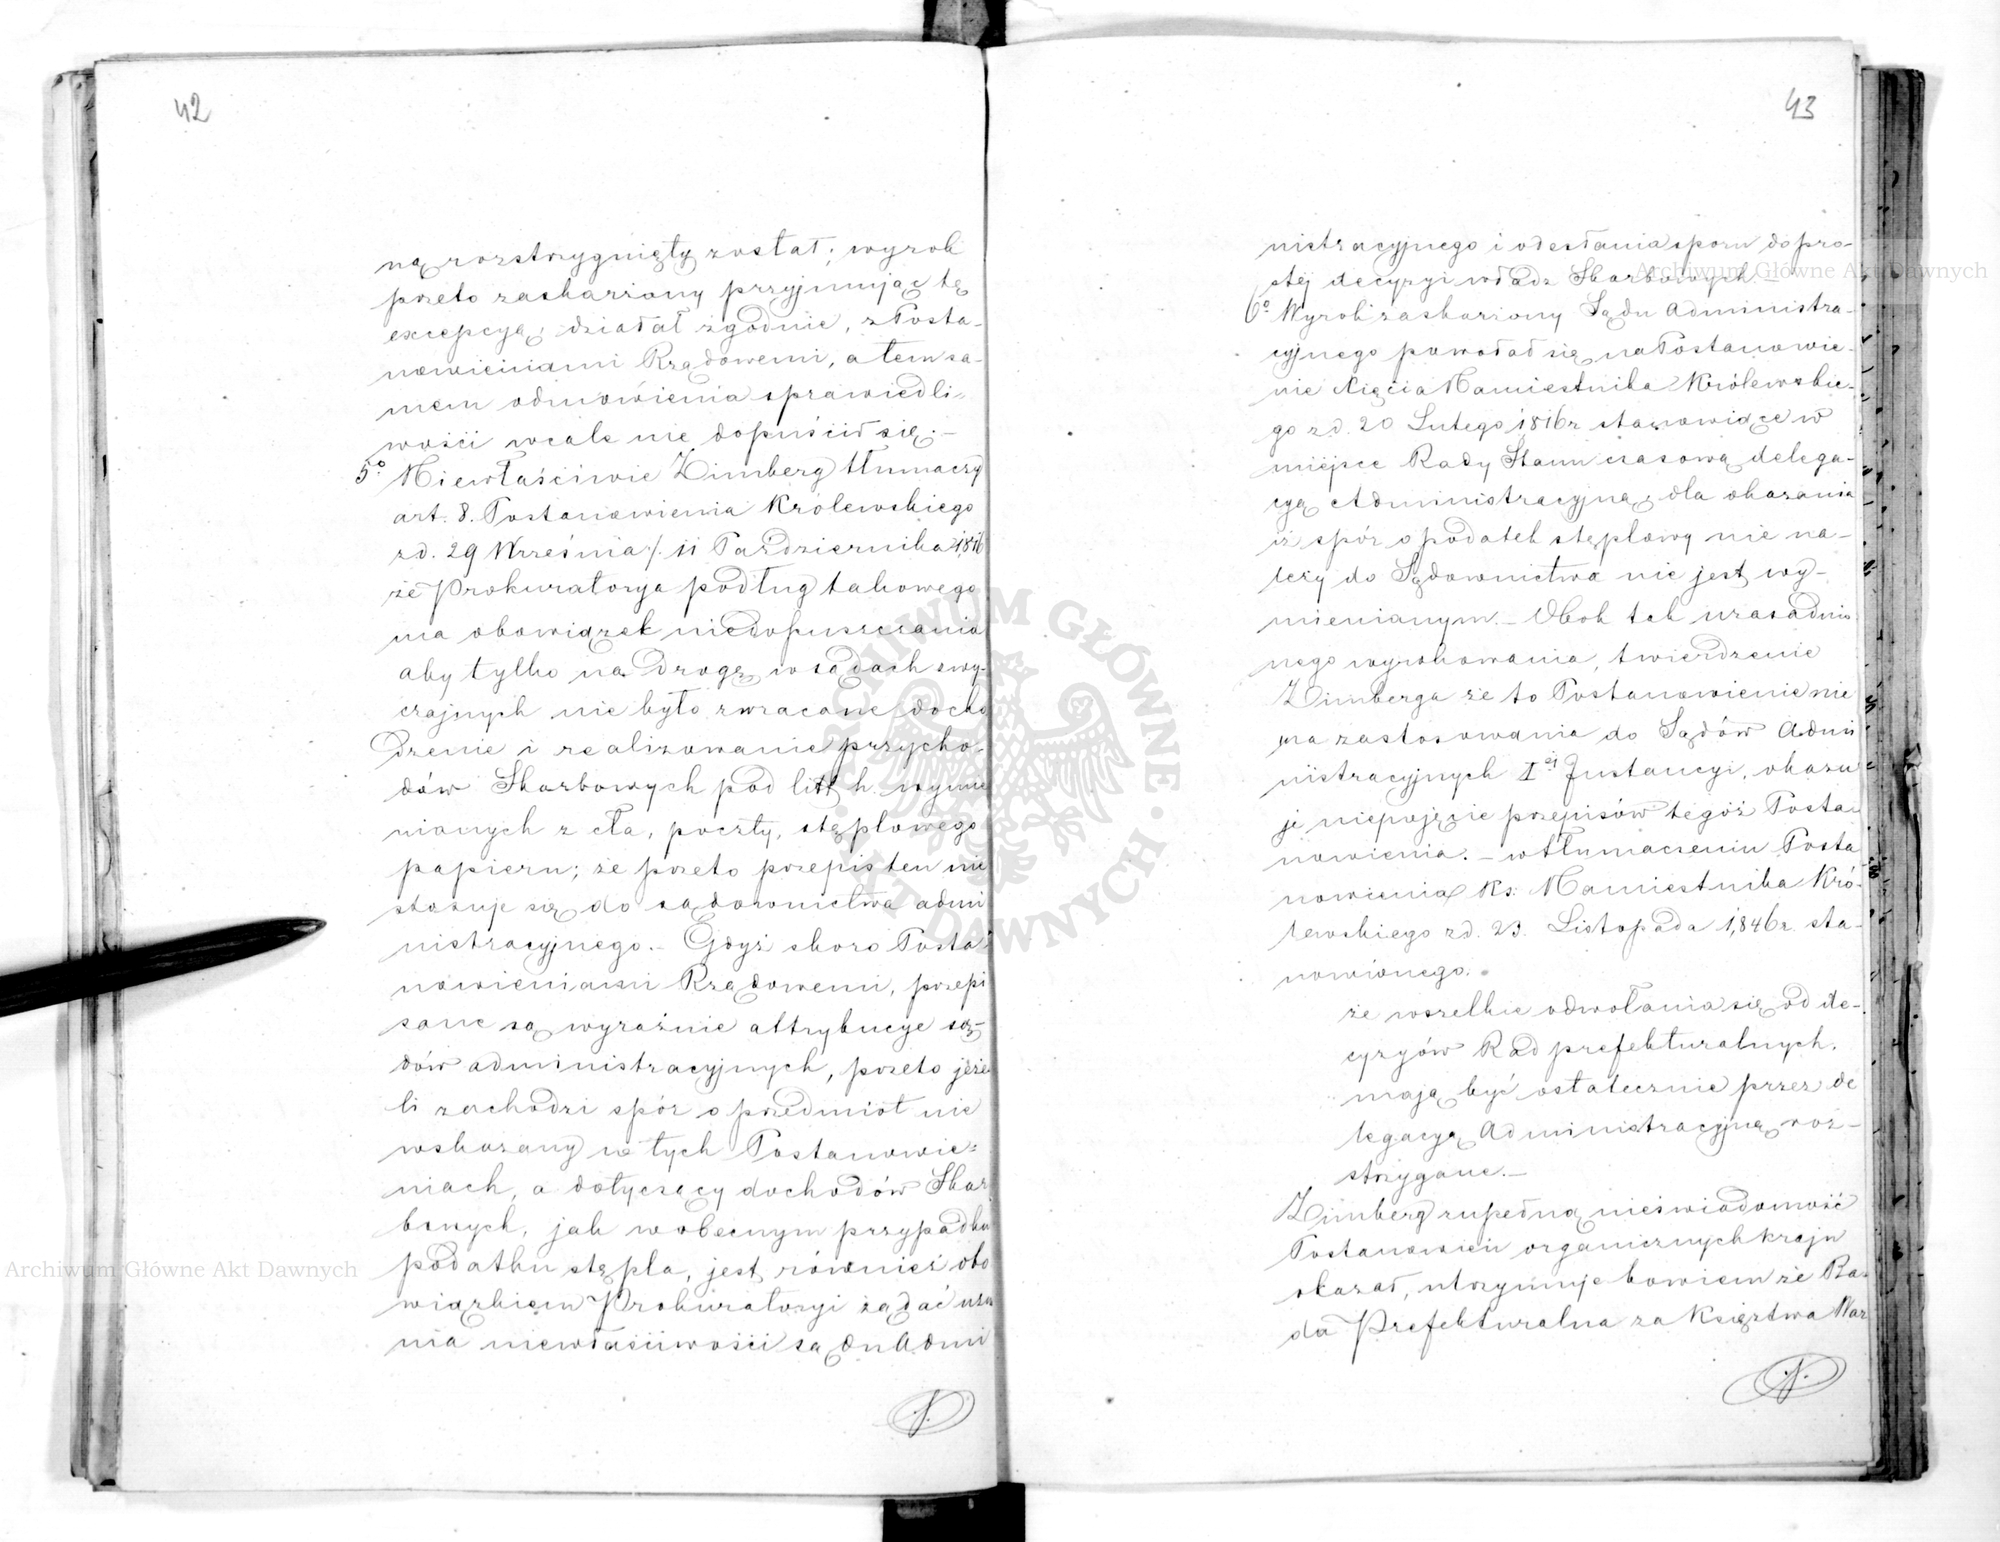 42
ną rozstrzygnięty został; wyrok
przeto zaskarżony przyjmując tę
excepcyą, działał zgodnie, z Posta-
nowieniami Rządowemi, a tem sa-
mem odmówienia sprawiedli-
wości wcale nie dopuścił się.-
5° Niewłaściwie Zimberg tłumaczy
art. 8. Postanowienia Królewskiego
z d. 29 Września /. 11 Października 1816
że Prokuratorya podług takowego
ma obowiązek niedopuszczania
aby tylko na drogę w sądach zwy-
czajnych nie było zwracane docho
dzenie i realizowanie przycho-
dów Skarbowych pod litt h. wymie
nionych z cła, poczty, stęplowego
papieru; że przeto przepis ten nie
stosuje się do sądownictwa admi
nistracyjnego.- Gdyż skoro Posta-
nowieniami Rządowemi, przepi
sane są wyraźnie attrybucye są-
dów administracyjnych, przeto jeże
li zachodzi spór o przedmiot nie
wskazany w tych Postanowie-
niach, a dotyczący dochodów Skar
bowych, jak w obecnym przypadku
podatku stępla, jest również obo
wiązkiem Prokuratoryi żądać uzna
nia niewłaściwości są du Admi
43
nistracyjnego i odesłania sporu do pro-
stej decyzyi władz Skarbowych.-
6° Wyrok zaskarżony Sądu Administra-
cyjnego powołał się na Postanowie-
nie Xięcia Namiestnika Królewskie-
go z d. 20 Lutego 1816 r stanowiące w
miejsce Rady Stanu czasową delega-
cyą Administracyjną, dla okazania
iż spór o podatek stęplowy nie na-
leży do Sądownictwa nie jest wy-
mienianym.- Obok tak uzasadnio
nego wyrokowania, twierdzenie
Zimberga że to Postanowienie nie
ma zastosowania do Sądów Admi
nistracyjnych Iej Instancyi, okazu
je niepojęcie przepisów tegoż Posta-
nowienia.- w tłumaczeniu Posta
nowienia Ks: Namiestnika Kró-
lewskiego z d. 23. Listopada 1846 r. sta-
nowionego.
że wszelkie odwołania się od de-
cyzyów Rad prefekturalnych,
mają być ostatecznie przez de
legacyą Administracyjną roz-
strzygane.-
Zimberg zupełną nieświadomość
Postanowień organicznych kraju
okazał, utrzymuje bowiem że Ra-
da Prefekturalna za Księztwa War
Archiwum Główne Akt Dawnych
Archiwum Główne Akt Dawnych
ARCHIWUM GŁÓWNE AKT DAWNYCH